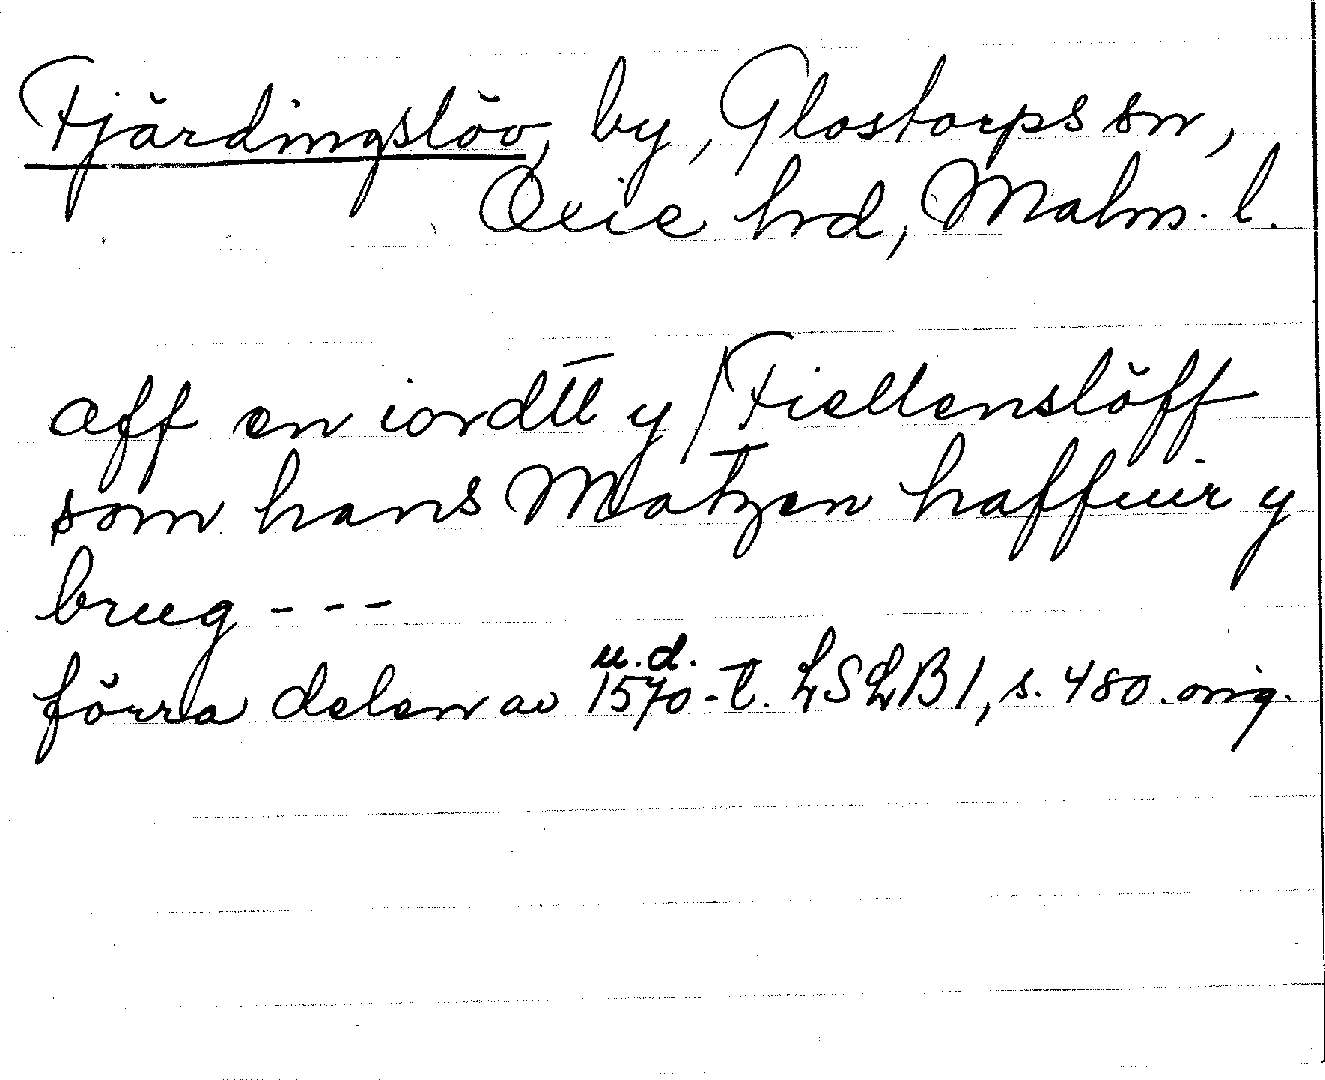 Fjärdingslöv, by, Glostorps sn,
Oxie hrd, Malm. l.
aff en iordtt y / Fiellenslöff
som hans Matzen haffuir y
brug ---
u.d.
förra delen av 1570-t. LSLB 1, s. 480. orig.